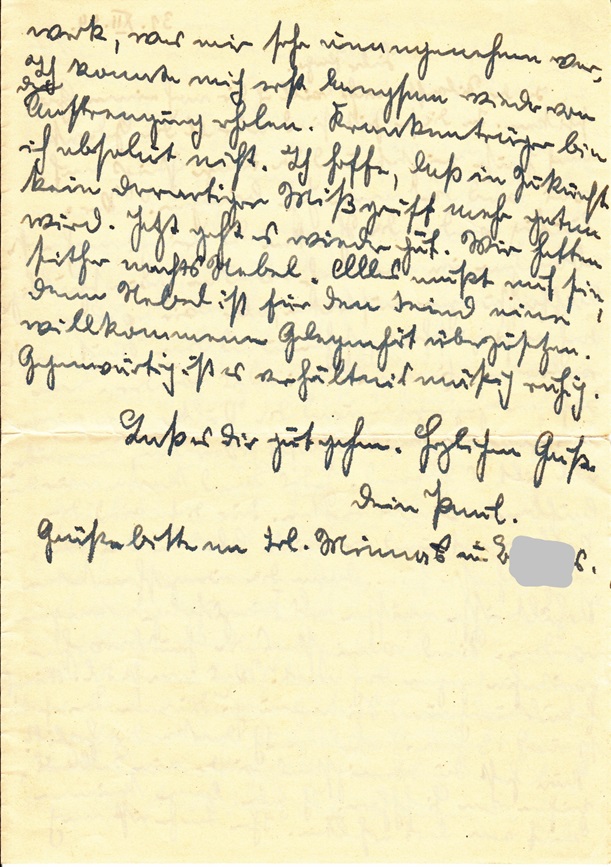 werk, was mir sehr unangenehm war,
Ich konnte mich erst langsam wieder von
der Anstrengung erholen. Krankenträger bin
ich absolut nicht. Ich hoffe, daß in Zukunft
kein derartiger Mißgriff mehr getan
wird. Jetzt geht es wieder gut. Wir hatten
seither nachts Nebel. Alles mußt auf sein,
denn Nebel ist für den Feind eine
willkommene Gelegenheit überzusetzen.
Gegenwärtig ist es verhältnismäßig ruhig.
Laß es dir gut gehen. Herzlichen Gruß
dein Paul.
Grüße bitte an Frl. Minna u.